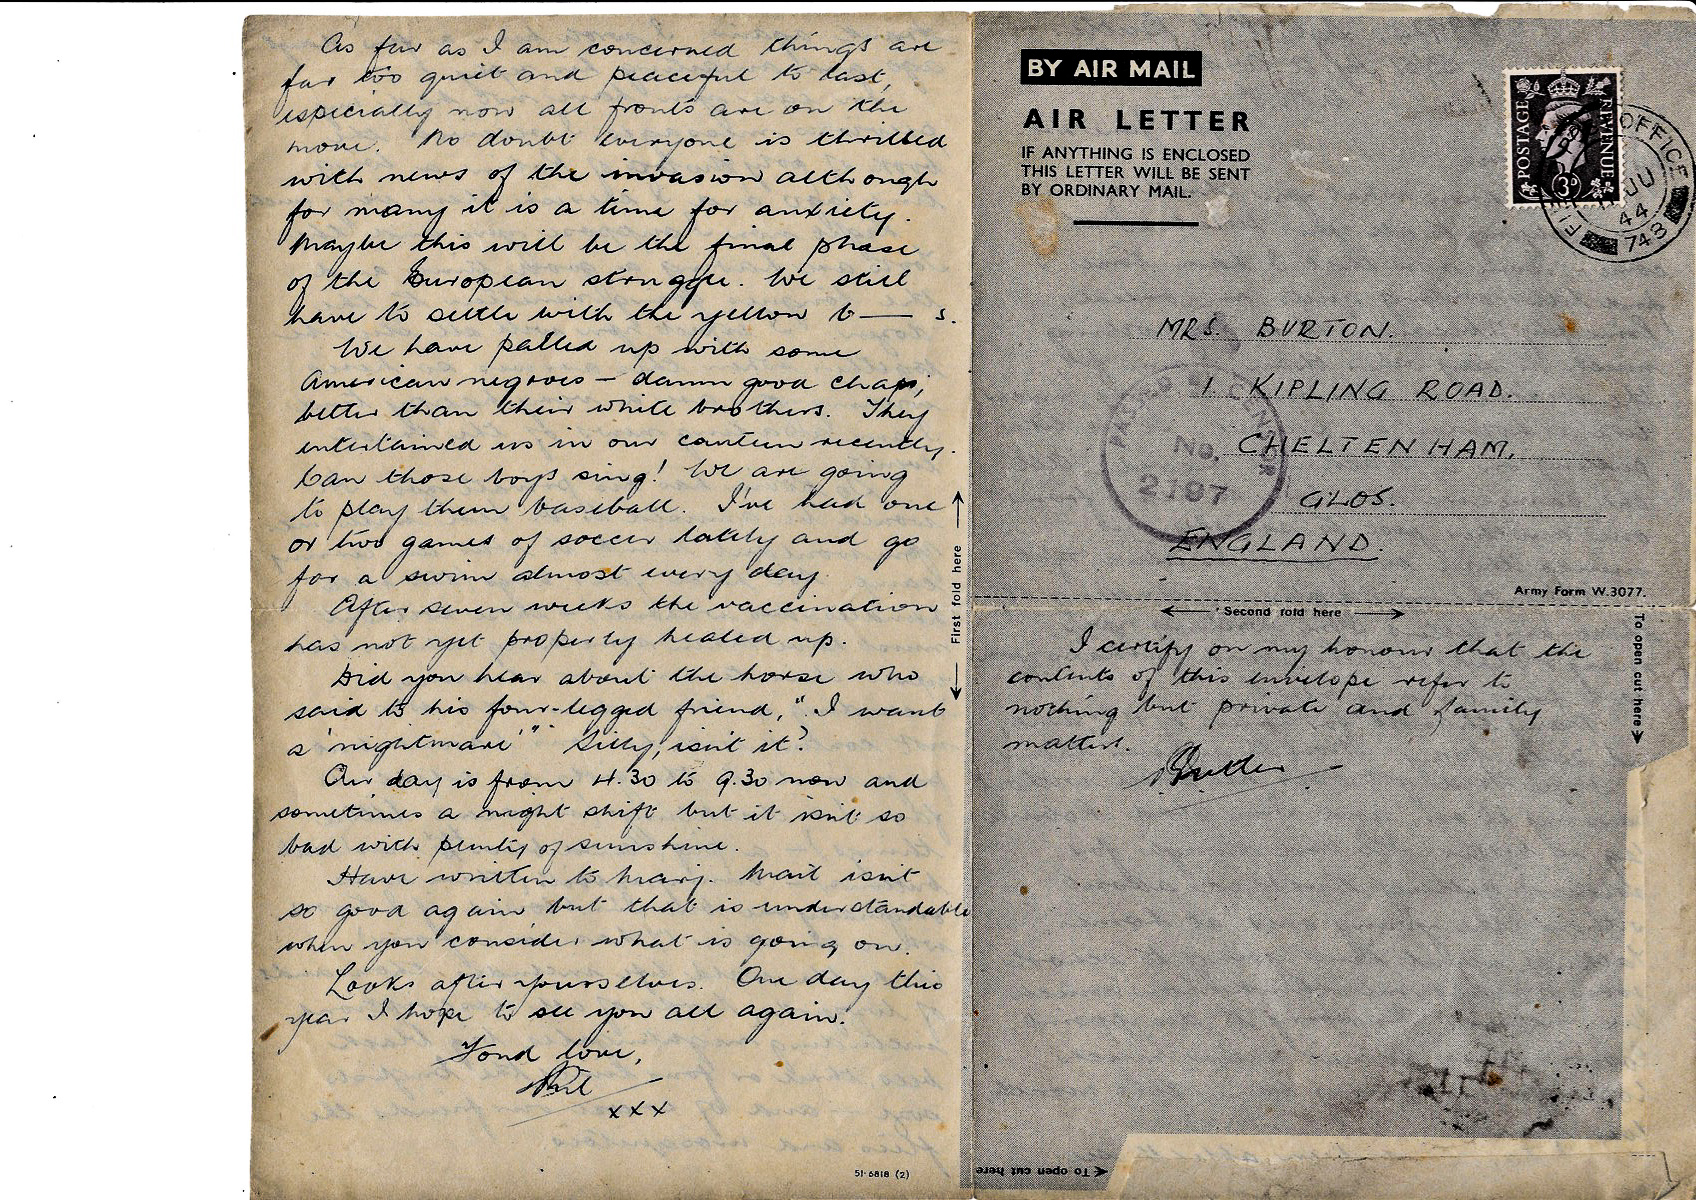 As far as I am concerned things are
far too quiet and peaceful to last,
especially now all fronts are on the
move. No doubt everyone is thrilled
with news of the invasion although
for many it is a time for anxiety.
Maybe this will be the final phase
of the European struggle. We still
have to settle with the yellow b—— s.
We have palled up with some
American negroes – damn good chaps;
better than their white brothers. They
entertained us in our canteen recently.
Can those boys sing! We are going
to play them baseball. I've had one
or two games of soccer lately and go
for a swim almost every day.
After seven weeks the vaccination
has not yet properly healed up.
Did you hear about the horse who
said to his four-legged friend, "I want
a 'nightmare'" Silly, isn't it?
Our day is from 4.30 to 9.30 now and
sometimes a night shift but it isn't so
bad with plenty of sunshine.
Have written to Mary. Mail isn't
so good again but that is understandable
when you consider what is going on.
Look after yourselves. One day this
year I hope to see you all again.
Fond love,
Phil
xxx
51-6818 (2)
First fold here
BY AIR MAIL
AIR LETTER
IF ANYTHING IS ENCLOSED
THIS LETTER WILL BE SENT
BY ORDINARY MAIL.
POSTAGE REVENUE
3D
FIELD POST OFFICE
JU
44
743
MRS. BURTON.
1. KIPLING ROAD.
CHELTENHAM,
GLOS.
ENGLAND.
PASSED CENSOR
No.
2197
Army Form W.3077.
Second fold here
To open cut here
I certify on my honour that the
contents of this envelope refer to
nothing but private and family
matters.
To open cut here